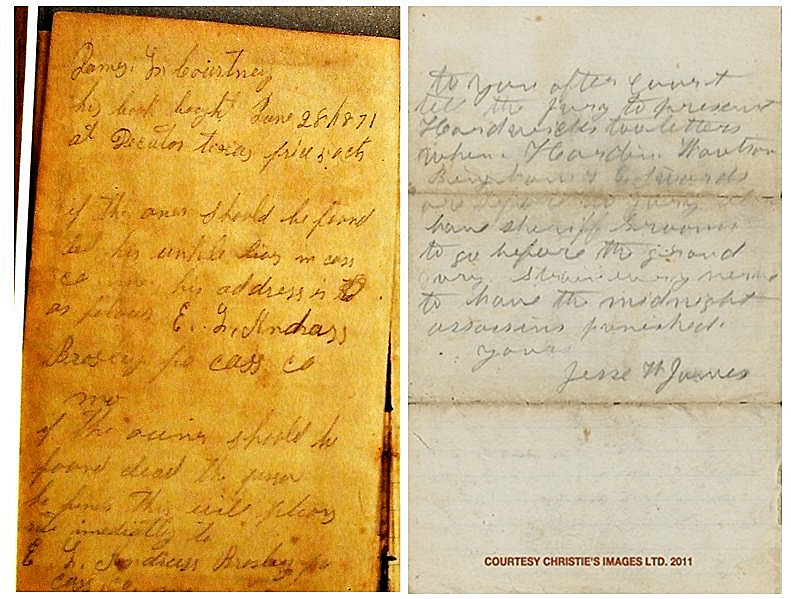 James L. Courtney
his book bogh June 28 1871
at Decator texas price 5 acts
if the oner should be found
let his unkle livs in cass
co mo. his address is
as folows E. L. Andrass
Brosley po cass co
mo
if the owner should be
found dead the person
he finds this will pleas
imediatly to
E. L. Andruss Brosley po
cass co
to you after court
tell the jury to present
Hardwicks two letters
when Hardin Wootson
Edwards
are before the jury
have sheriff Grooms
to go before the grand
jury. Strain every nerve
to have the midnight
assassins punished.
yours
Jesse W James
COURTESY CHRISTIE'S IMAGES LTD. 2011